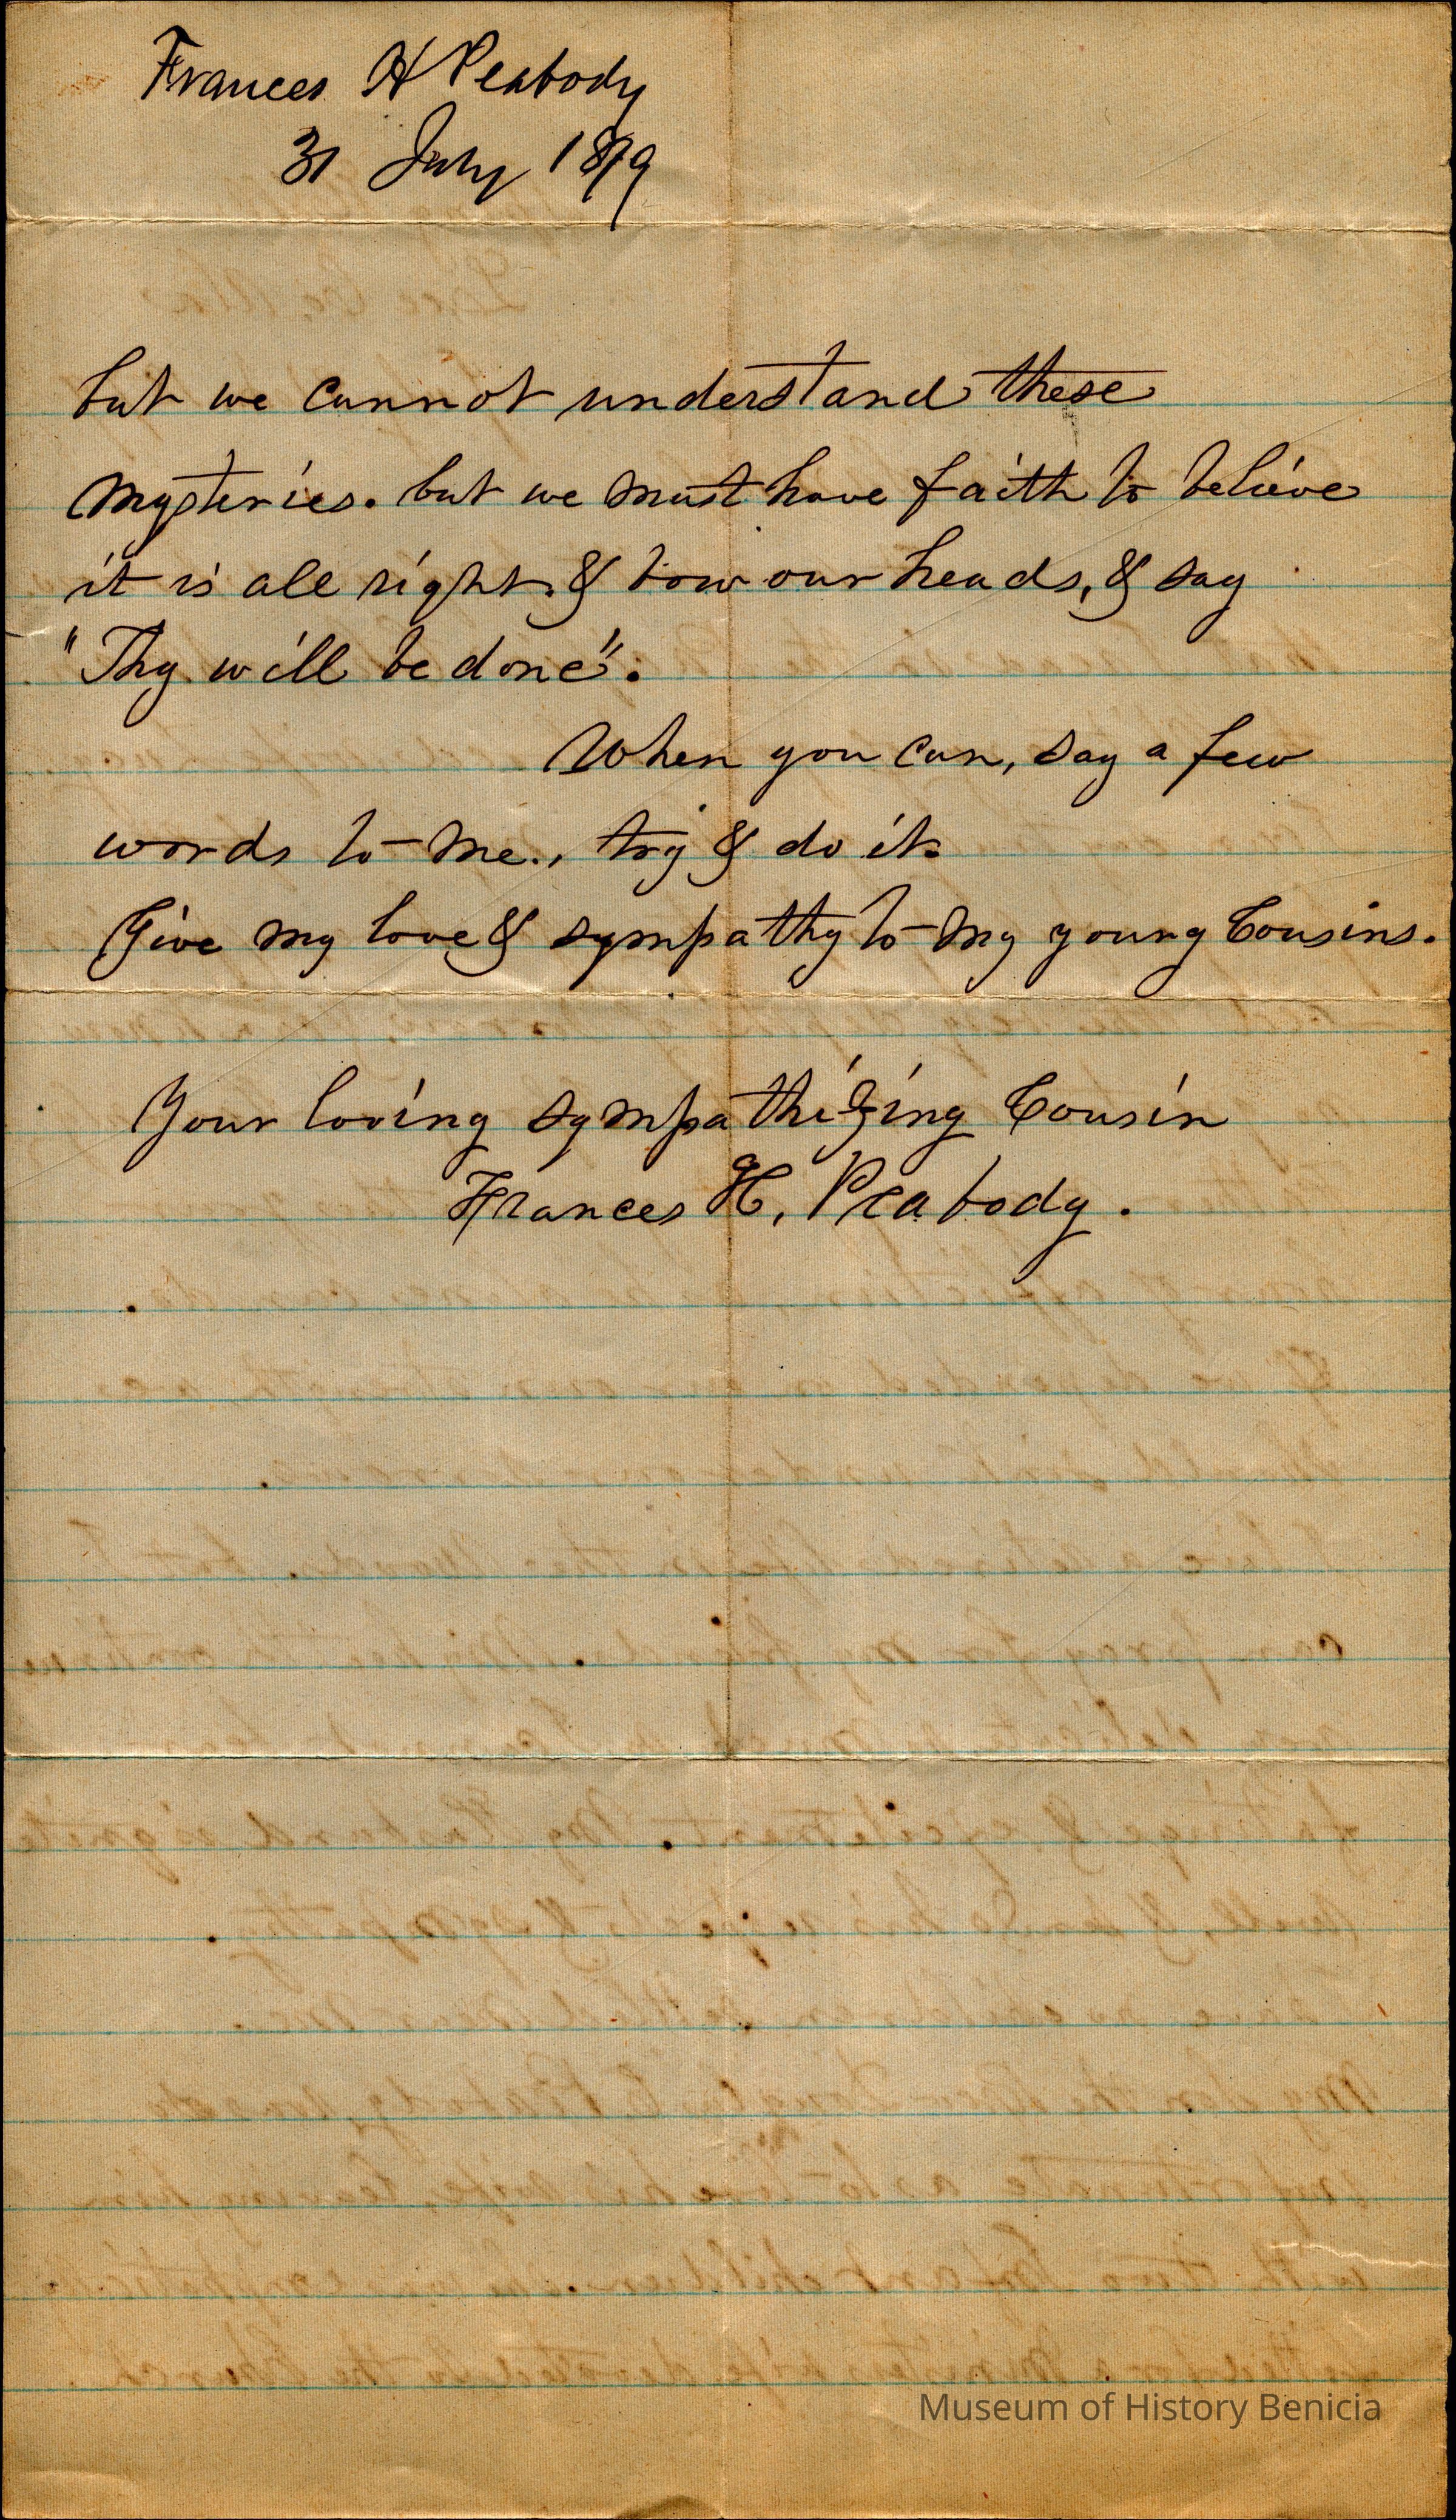 Frances H Peabody
31 July 1879
but we cannot understand these
mysteries. but we must have faith to believe
it is all right, & bow our heads, & say
"Thy will be done".
When you can, say a few
words to me., try & do it.
Give my love & sympathy to my young Cousins.
Your loving sympathizing Cousin
Frances H. Peabody.
Museum of History Benicia